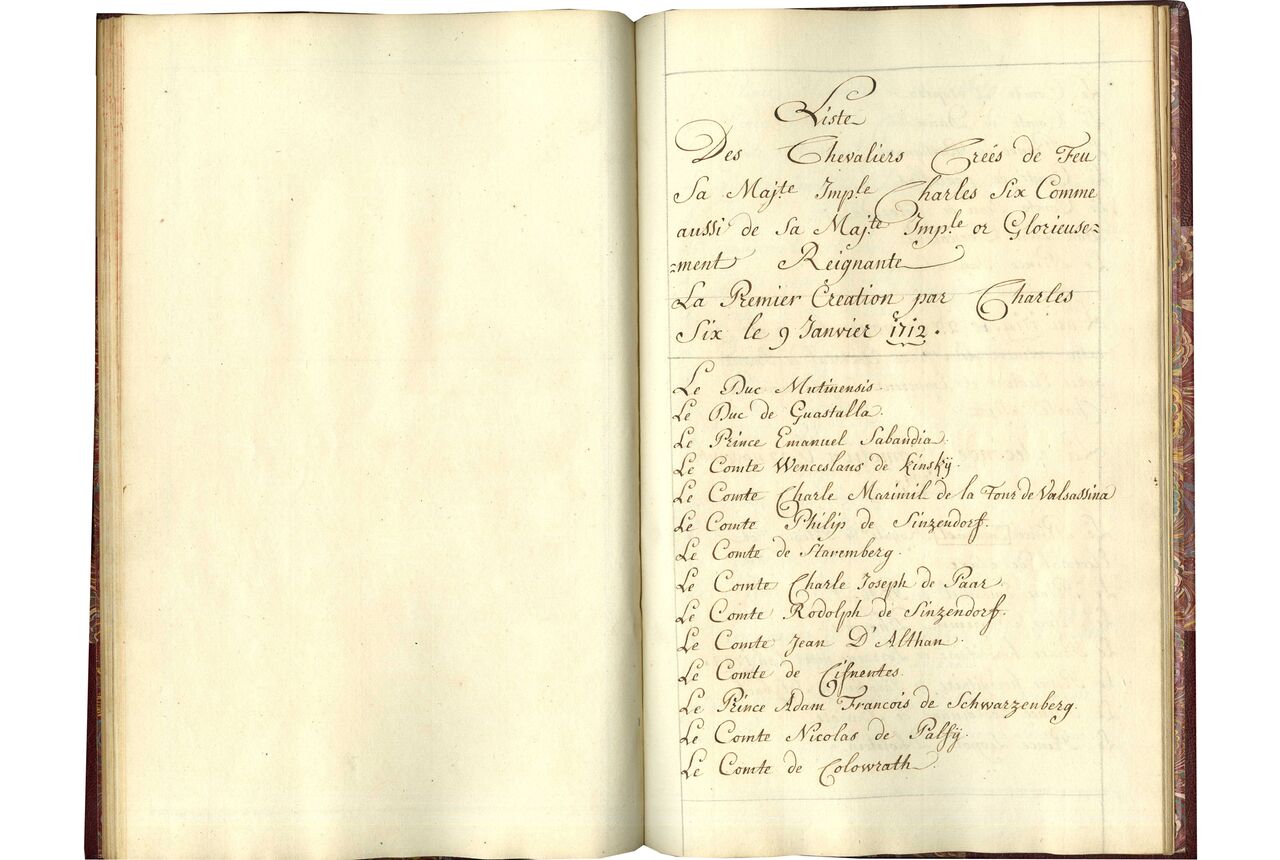 Liste
Des Chevaliers Creés de Feu
Sa Maj:te Imp:le Charles Six Comme
aussi de Sa Maj:te Imp:le or Glorieuse=
=ment Reignante
La Premier Creation par Charles
Six le 9 Janvier 1712.
Le Duc Mutinensis.
Le Duc de Guastalla.
Le Prince Emanuel Sabandia.
Le Comte Wenceslaus de Kinskÿ.
Le Comte Charle Maximil de la Tour de Valsassina
Le Comte Philip de Sinzendorf.
Le Comte de Staremberg.
Le Comte Charle Joseph de Paar.
Le Comte Rodolph de Sinzendorf.
Le Comte Jean D'Althan.
Le Comte de Cifnentes.
Le Prince Adam Francois de Schwarzenberg.
Le Comte Nicolas de Palfÿ.
Le Comte de Colowrath.